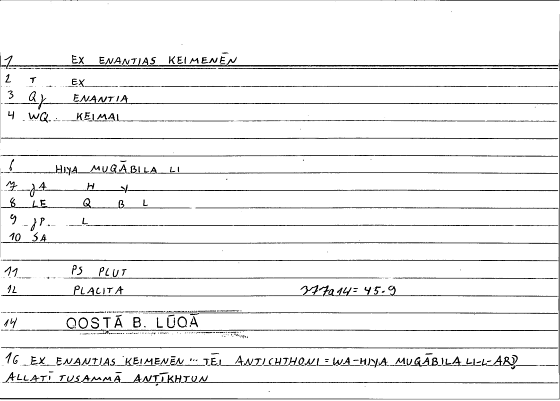 1 EX ENANTIAS KEIMENĒN
2 T EX
3 Qj ENANTIA
4 WQ KEIMAI
6 HIYA MUQĀBILA LI
7 jA H Y
8 LE Q B L
9 jP L
10 SA
11 PS PLUT
12 PLACITA 377a14 = 45.9
14 QOSTĀ B. LŪQĀ
16 EX ENANTIAS KEIMENĒN ... TĒI ANTICHTHONI = WA-HIYA MUQĀBILA LI-L-ARḌ
ALLATĪ TUSAMMĀ ANṬĪKHTUN